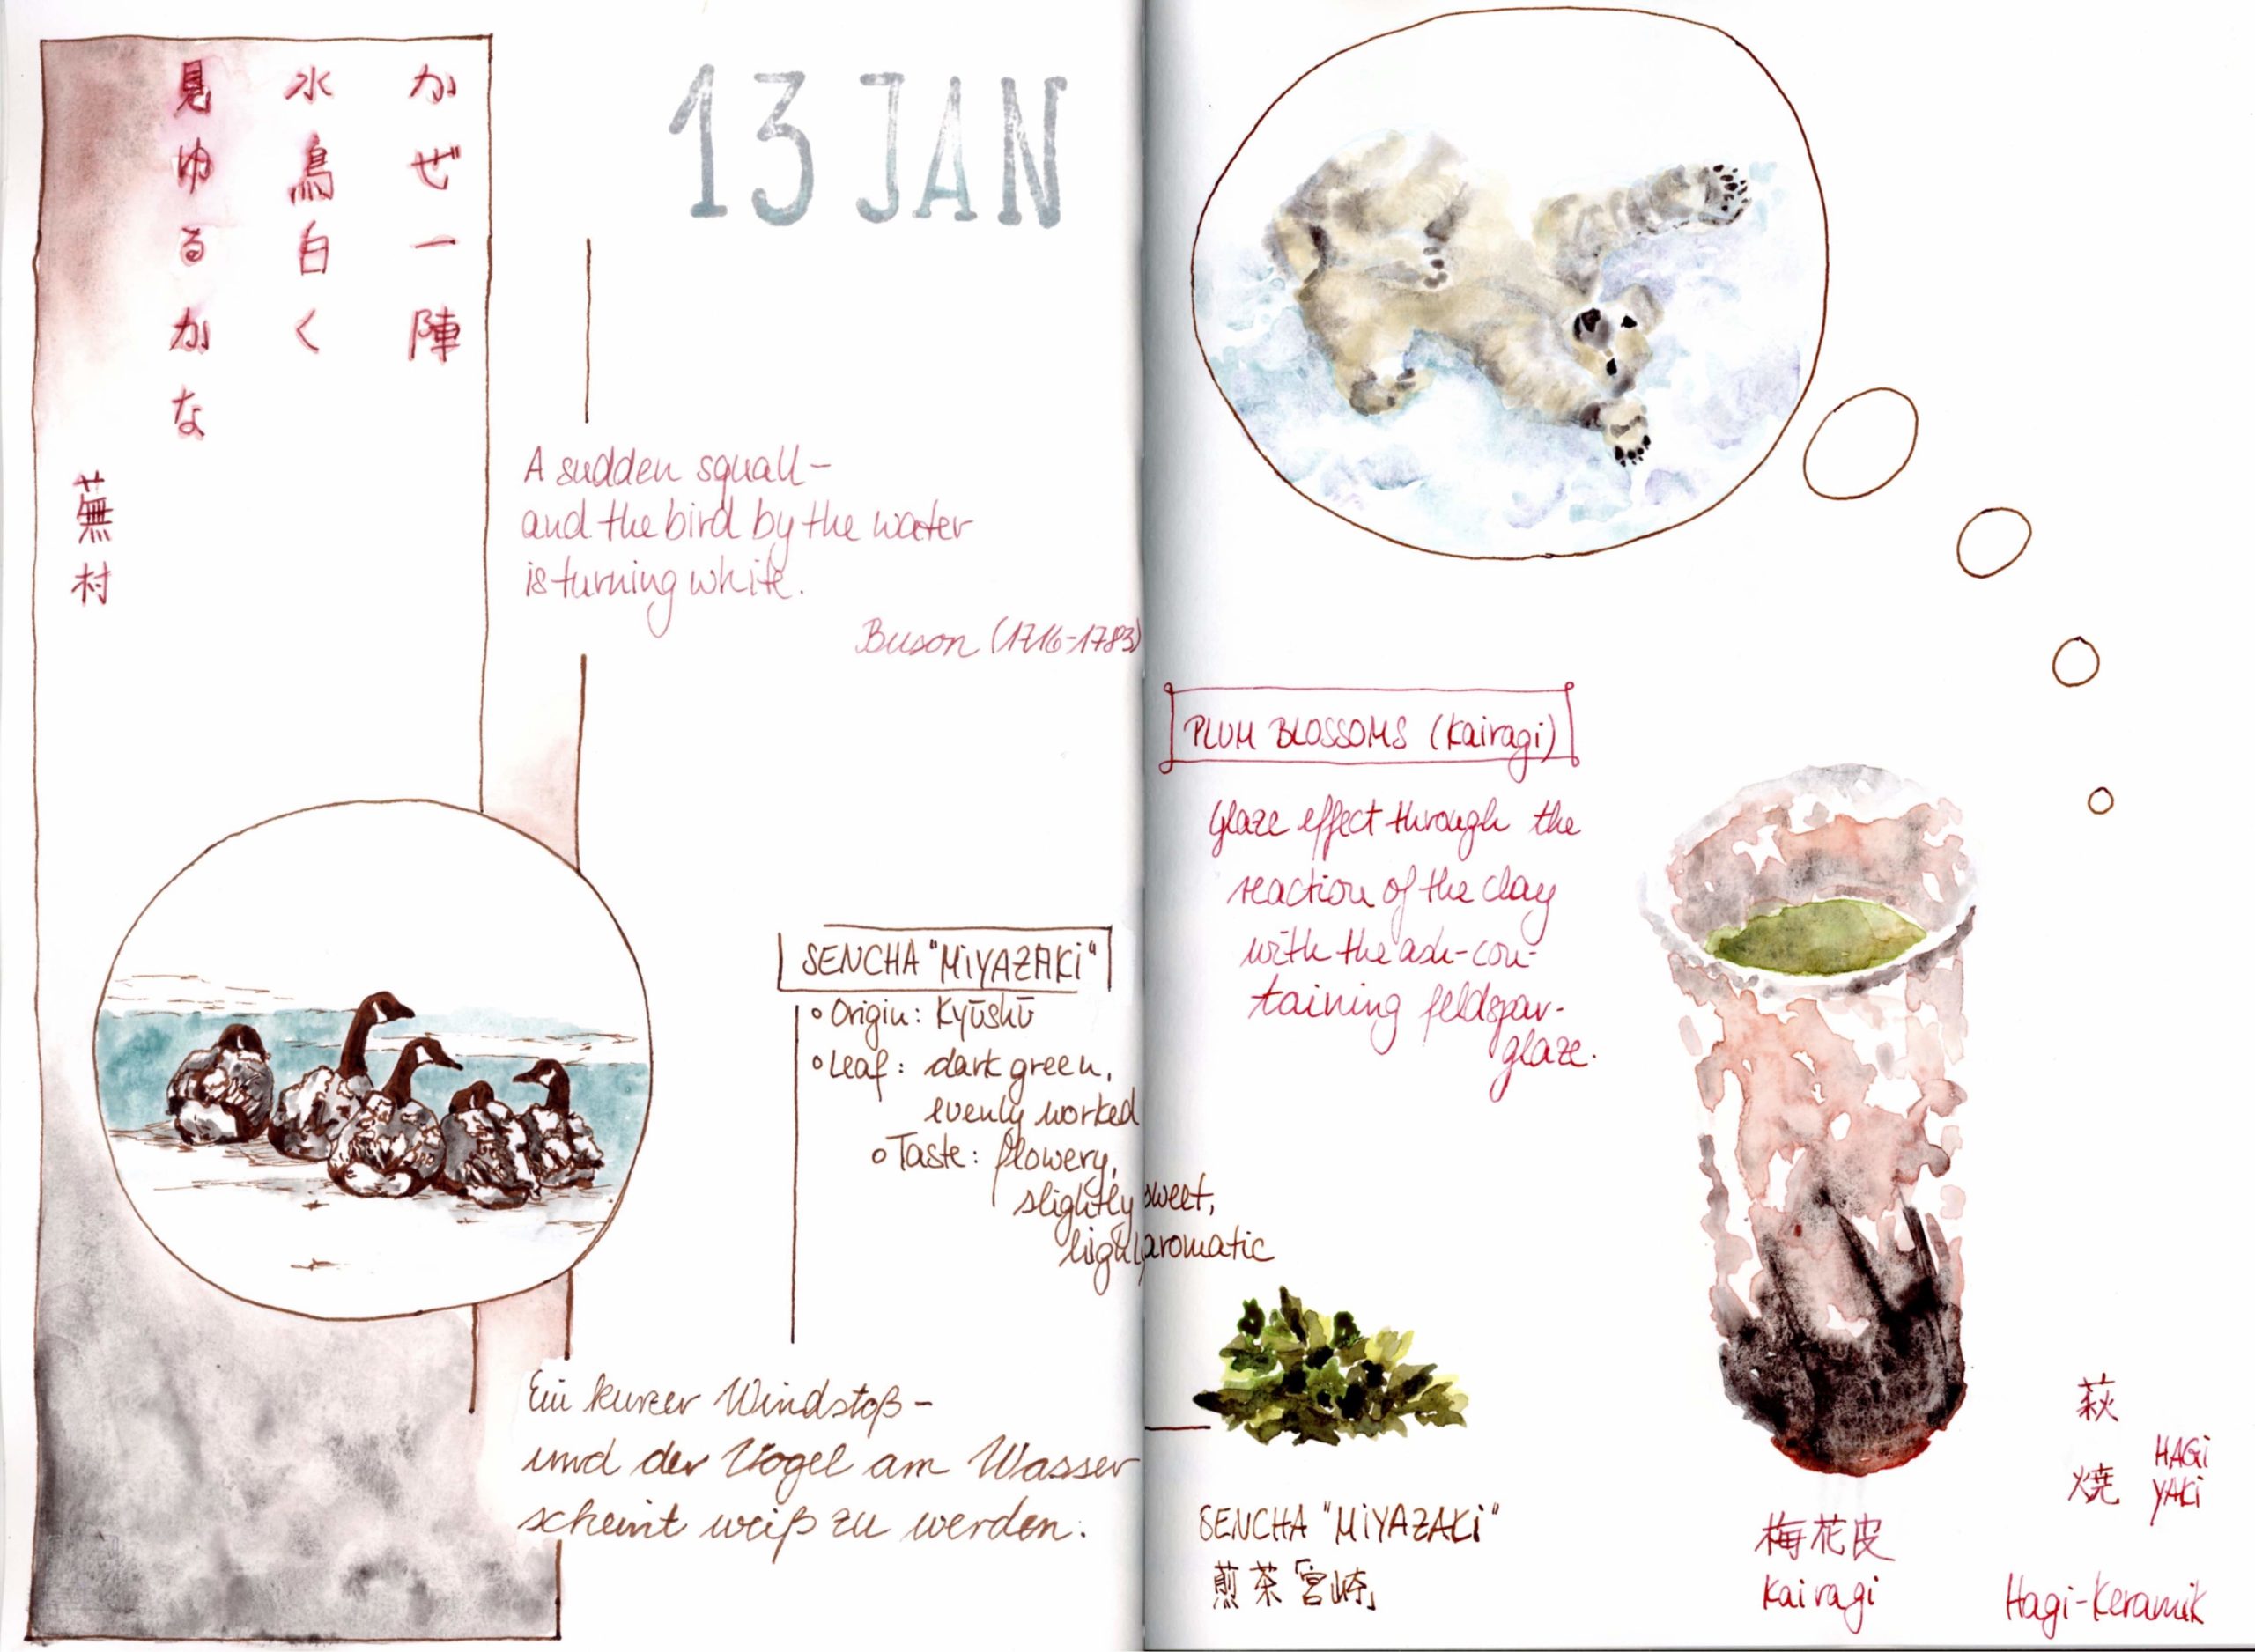 13 JAN
かぜ一陣
水鳥白く
見ゆるかな
蕪村
A sudden squall-
and the bird by the water
is turning white.
Buson (1716-1783)
SENCHA "MiYAZAKi"
Origin: Kyūshū
Leaf: dark green,
evenly worked
Taste: flowery,
slightly sweet,
highly aromatic
Ein kurzer Windstoß-
und der Vogel am Wasser
scheint weiß zu werden.
PLUM BLOSSOMS (Kairagi)
Glaze effect through the
reaction of the clay
with the ash-con-
taining feldspar-
glaze.
SENCHA "MiYAZAKi"
煎茶「宮崎」
梅花皮
Kairagi
萩焼
HAGi
YAKi
Hagi-Keramik